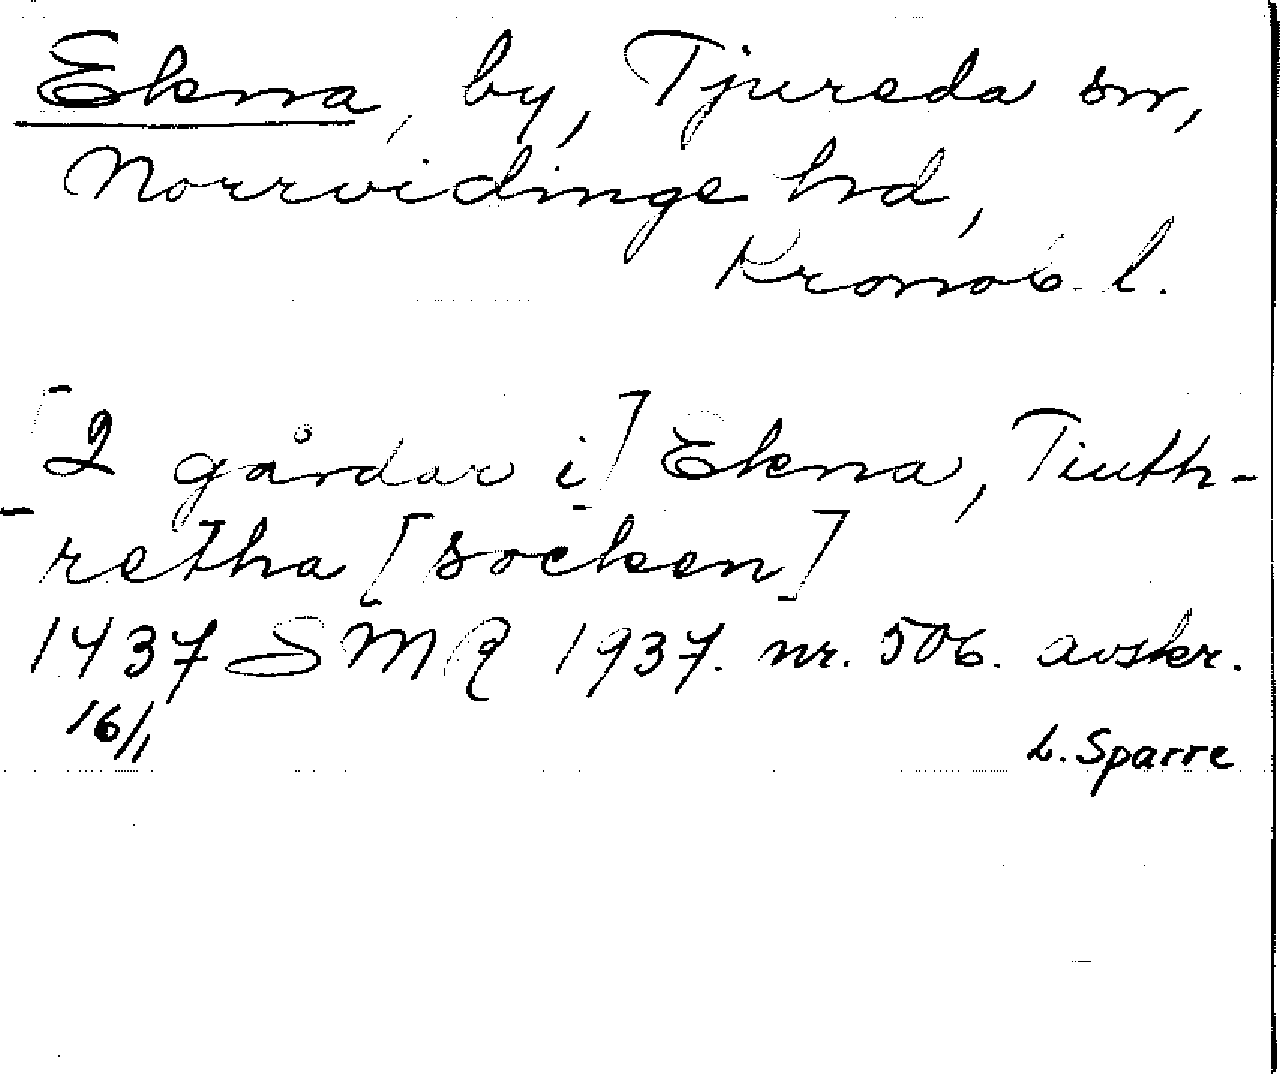 Ekna, by, Tjureda sn,
Norrvidinge hd,
Kronob. l.
[2 gårdar i] Ekna, Tiuth-
retha [socken]
1437 SMR 1937. nr. 506. avskr.
16/1
L. Sparre